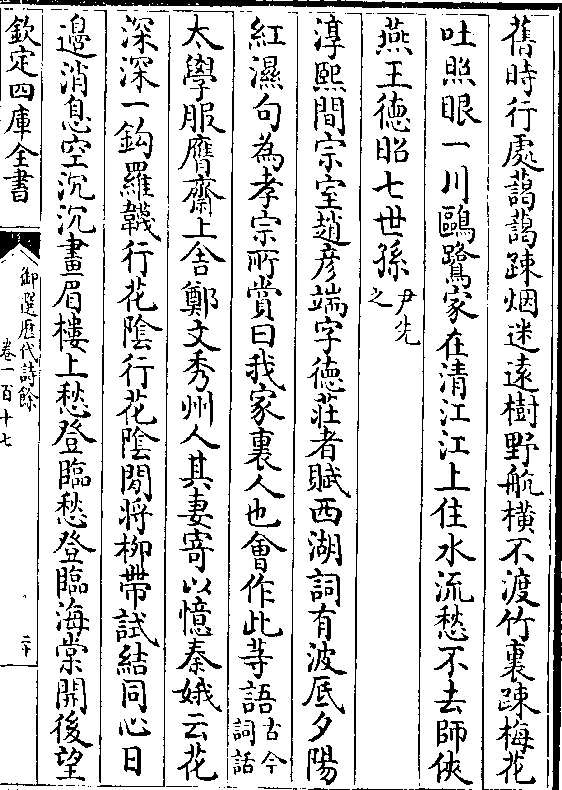 舊時行處藹藹踈烟迷遠樹野航橫不渡竹裏踈梅花
吐照眼一川鷗鷺家在清江江上住水流愁不去師俠
燕王徳昭七世孫尹先之
淳熙間宗室趙彦端字徳莊者賦西湖詞有波底夕陽
紅濕句為孝宗所賞曰我家裏人也會作此等語古今詞話
太學服膺齋上舍鄭文秀州人其妻寄以憶秦娥云花
深深一鈎羅韈行花陰行花陰閒將柳帶試結同心日
邊消息空沉沉畫眉樓上愁登臨愁登臨海棠開後望
欽定四庫全書
御選歷代詩餘
卷一百十七
二十